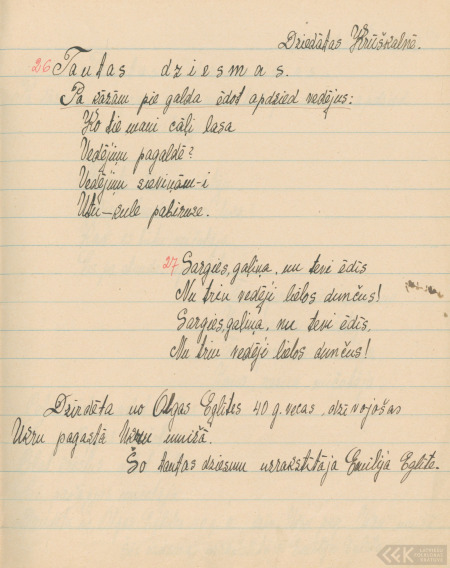 Dziedātas Krūškalnē.
26 Tautas dziesmas.
Pa kāzām pie galda ēdot apdzied vedējus:
Ko tie mani cāļi lasa
Vedējiņu pagaldē?
Vedējiņu sieviņām-i
Utu-kule pabiruse.
27 Sargies, gaļiņa, nu tevi ēdīs
Nu trin vedēji lielos dunčus!
Sargies, gaļiņa, nu tevi ēdīs,
Nu trin vedēji lielos dunčus!
Dzirdēta no Olgas Eglītes 40 g. vecas, dzīvojošas
Ukru pagastā Ukru muižā.
Šo tautas dziesmu uzrakstītāja Emilija Eglīte.